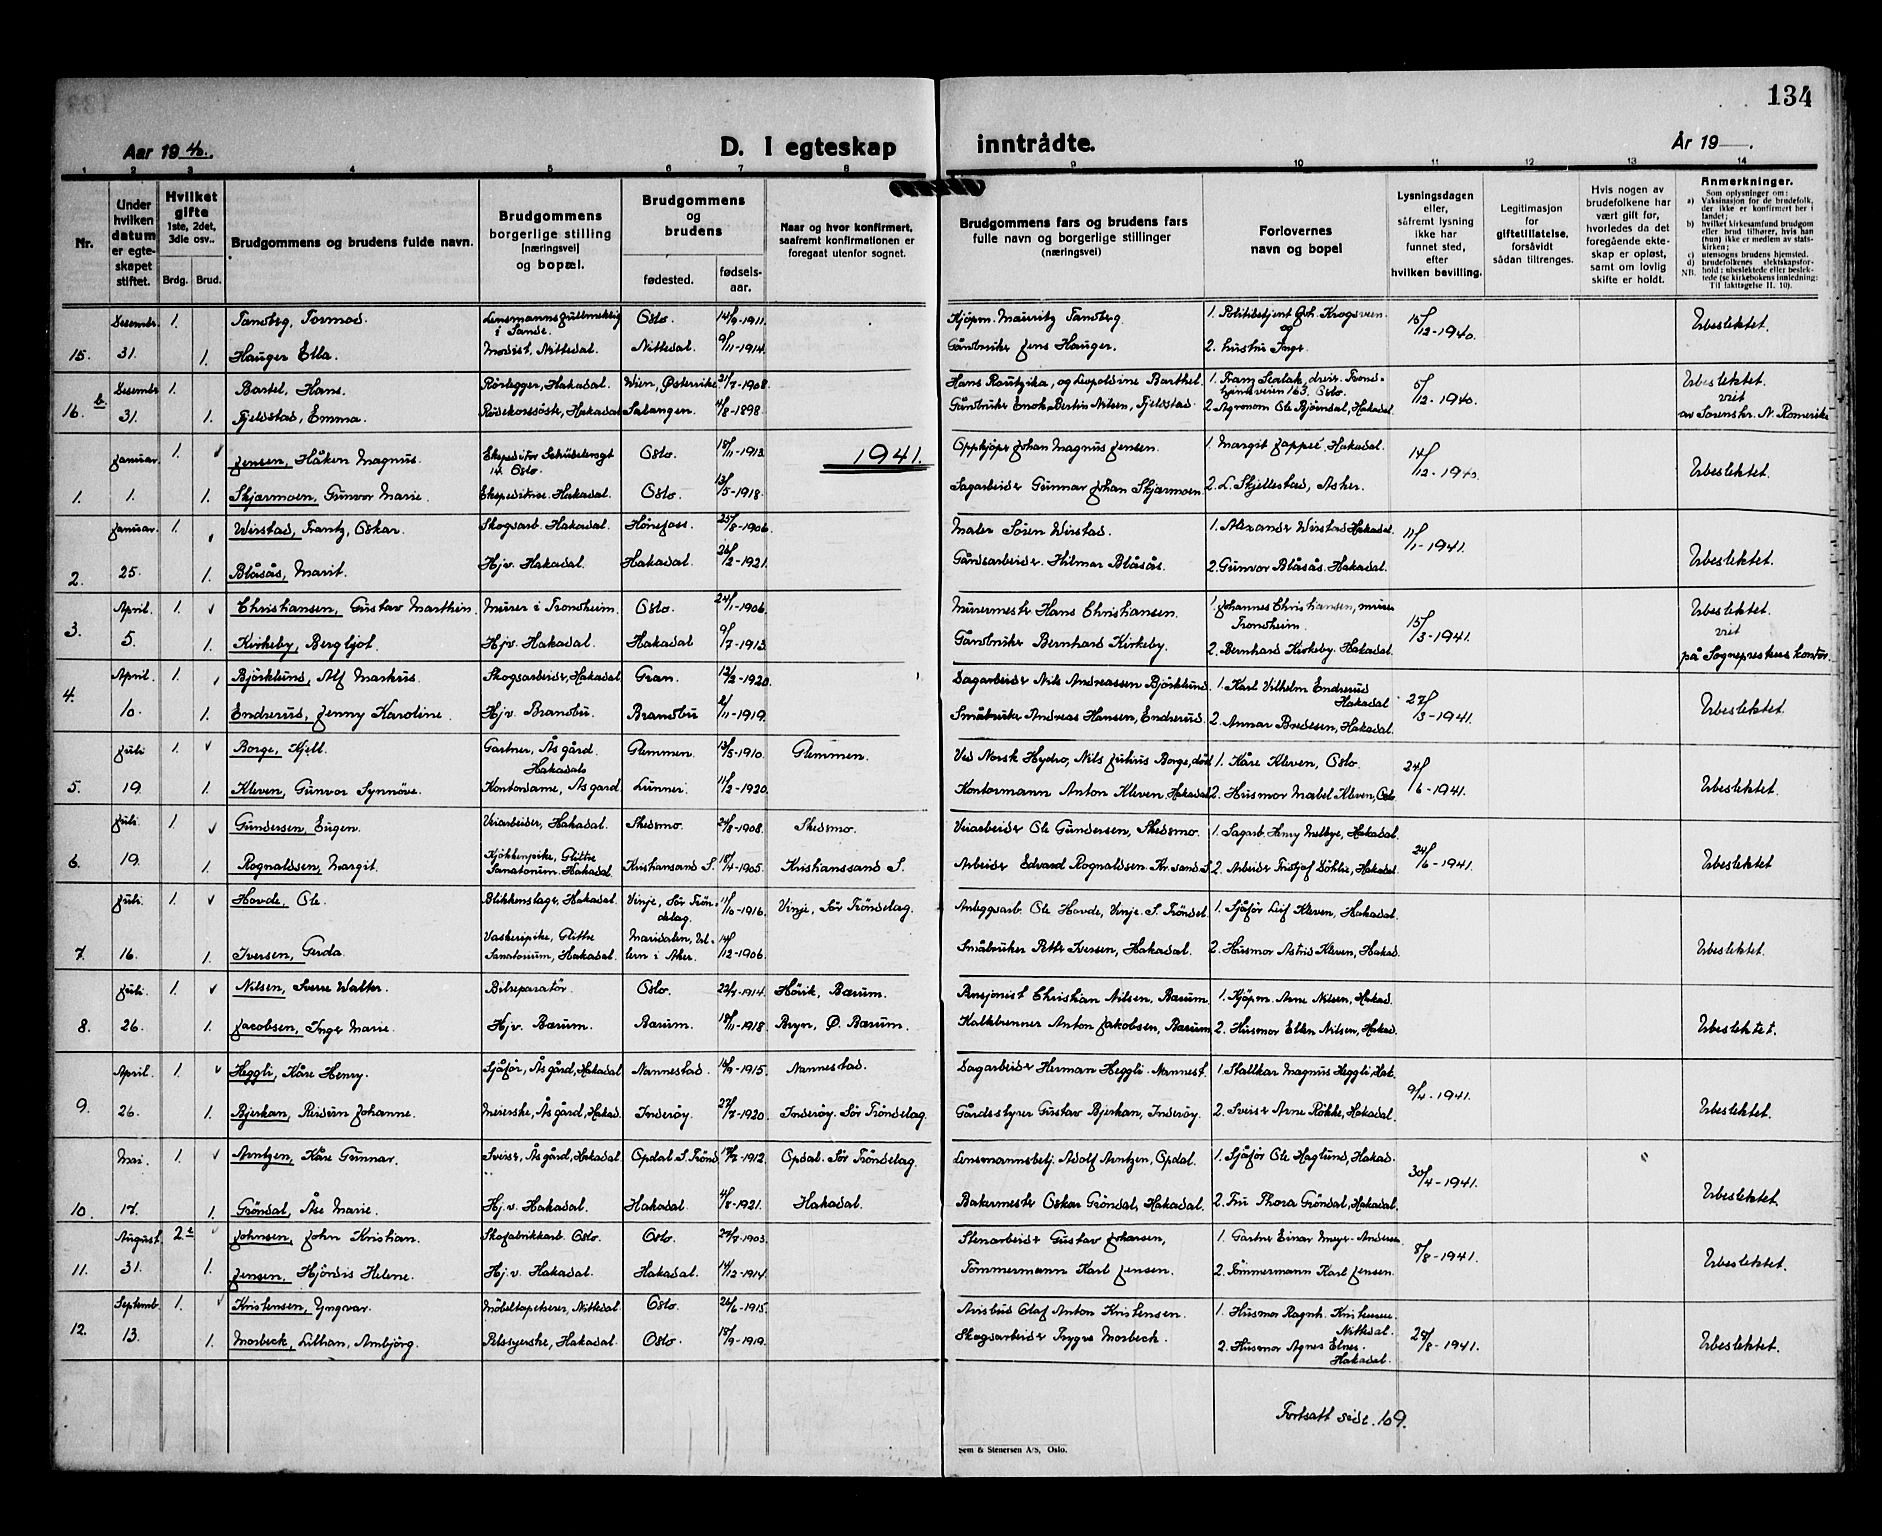 134
Aar 19 40.
D. I egteskap
inntrådte.
År 19 .
1 2 3 4 5 6 7 8 9 10 11 12 13 14
Nr.
Under hvilken datum er egteskapet stiftet.
Hvilket gifte 1ste, 2det, 3die osv..
Brdg. Brud.
Brudgommens og brudens fulde navn.
Brudgommens borgerlige stilling (næringsvei) og bopæl.
Brudgommens og brudens
fødested.
fødsels-aar.
Naar og hvor konfirmert, saafremt konfirmationen er foregaat utenfor sognet.
Brudgommens fars og brudens fars fulle navn og borgerlige stillinger (næringsvei)
Forlovernes navn og bopel
Lysningsdagen eller, såfremt lysning ikke har funnet sted, efter hvilken bevilling.
Legitimasjon for giftetillatelse. forsåvidt sådan tiltrenges.
Hvis nogen av brudefolkene har vært gift før, hvorledes da det foregående ekteskap er opløst, samt om lovlig skifte er holdt.
Anmerkninger.
Som oplysninger om:
a) Vaksinasjon for de brudefolk, der ikke er konfirmert her i landet;
b) hvilket kirkesamfund brudgom eller brud tilhører, hvis han (hun) ikke er medlem av statskirken;
c) utensogns brudens hjemsted.
d) brudefolkenes slektskapsforhold: ubeslektede eller beslektede (se kirkebokens innledning: Til Iakttagelse II. 10).
NB.
Desember 1. Tandberg, Tormod Lensmannsfullmektig i Sande. Oslo. 14/9-1911. Kjøpm. Mauritz Tandberg. 1. Politibetjent Joh. Krogsveen og 15/12-1940. Ubeslektet.
15. 31. 1. Hauger Ella. Modist, Nittedal. Nittedal. 9/11-1914. Gårdbruker Jens Hauger. 2. hustru Inge.
Desember 1. Bartel, Hans. Rørlegger, Hakadal. Wien, Østerrike 21/7-1908. Hans Routzika, og Leopoldine Barthel. 1. Franz 163, Oslo. 5/12-1940. Ubeslektet. viet
16. b. 31. 1. Fjeldstad, Emma. Rødekorssøster, Hakadal Salangen. 4/8-1898. Gårdbruker Enok Bertin Nilsen, Fjeldstad. 2. Agronom Ole Bjørndal, Hakadal. av Sorenskr. N. Romerike
1941.
Januar. 1. Jensen, Håken Magnus. Ekspeditør 14. Oslo. Oslo. 18/11-1913. Oppkjøper Johan Magnus Jensen. 1. Margit Jappeé Hakadal. 14/12-1940. Ubeslektet.
1. 1. 1. Skjærmoen, Gunvor Marie. Ekspeditrise. Hakadal. Oslo. 13/5-1918. Sagarbeider Gunnar Johan Skjærmoen. 2. L. Skjellestad, Asker.
Januar. 1. Wirstad, Frantz, Oskar. Skogsarb. Hakadal. Hønefoss. 25/8-1906. Maler Søren Wirstad. 1. Alexander Wirstad Hakadal. 11/1-1941. Ubeslektet.
2. 25. 1. Blåsås, Marit. Hjv. Hakadal. Hakadal. 26/2-1921. Gårdsarbeider Hilmar Blåsås. 2. Gunvor Blåsås. Hakadal.
April. 1. Christiansen, Gustav Marthin. Murer i Trondheim. Oslo. 24/1-1906. Murermester Hans Christiansen. 1. Johannes Christiansen, murer Trondheim. 15/3-1941. Ubeslektet. viet
3. 5. 1. Kirkeby, Bergljot. Hjv. Hakadal. Hakadal 9/7-1913. Gårdbruker Bernhard Kirkeby. 2. Bernhard Kirkeby. Hakadal. på Sogneprestens kontor.
4. April. 1. Bjørklund, Alf Markus. Skogsarbeider, Hakadal Gran. 12/2-1920. Sagarbeider Nils Andreassen Bjørklund. 1. Karl Vilhelm Endrerud Hakadal 27/3-1941. Ubeslektet.
10. 1. Endrerud, Jenny Karoline. Hjv. Brandbu. Brandbu 2/11-1919. Småbruker Andreas Hansen, Endrerud. 2. Annar Bredesen, Hakadal.
Juli 1. Borge, Kjell. Gartner, Åsgård. Hakadals Glemmen. 13/5-1910. Glemmen. Ved Norsk Hydro, Nils Julius Borge, død 1. Kåre Kleven, Oslo. 24/6-1941. Ubeslektet.
5. 19. 1. Kleven, Gunvor Synnøve. Kontordame, Åsgard Lunner. 11/2-1920. Kontormann Anton Kleven. Hakadal 2. Husmor Mabel Kleven, Oslo.
Juli. 1. Gundersen, Eugen. Veiarbeider, Hakadal. Skedsmo. 24/8-1908. Skedsmo. Veiarbeider Ole Gundersen, Skedsmo. 1. Sagarb. Henry Melbye, Hakadal. 24/6-1941. Ubeslektet
6. 19. 1. Rognaldsen, Margit. Kjøkkenpike, Glittre Sanatorium. Hakadal. Kristiansand S. 18/4-1905. Kristianssand S. Arbeider Edvard Rognaldsen. Kr.sand S. 2. Arbeider Fridtjof Döhlie, Hakadal.
Juli. 1. Hovde, Ole. Blikkenslager, Hakadal. Vinje, Sør Trøndelag. 11/10-1916. Vinje, Sør Trøndelag. Anleggsarb. Ole Hovde, Vinje. S. Trøndel. 1. Sjåfør Leif Kleven, Hakadal.
7. 16. 1. Iversen, Gerda. Vaskeripike, Glittre Sanatorium, Hakadal. Maridalen, i Aker. 14/12-1906. Småbruker Petter Iversen, Hakadal. 2. Husmor Astrid Kleven, Hakad. Ubeslektet.
Juli. 1. Nilsen, Sverre Walter. Bilreparatør. Oslo. 22/7-1914. Høvik, Bærum. Pensjonist Christian Nilsen, Bærum. 1. Kjøpm. Arne Nilsen, Hakad.
8. 26. 1. Jacobsen, Inger Marie. Hjv. Bærum. Bærum. 18/11-1918. Bryn, Ø. Bærum. Kalkbrenner Anton Jakobsen, Bærum 2. Husmor Ellen Nilsen, Hakad. Ubeslektet.
April. 1. Heggli, Kåre Henry. Sjåfør, Åsgård, Hakadal Nannestad. 14/9-1915. Nannestad. Sagarbeider Herman Heggli. Nannest. 1. Stallkar Magnus Heggli Hak. 9/4-1941.
9. 26. 1. Bjerkan, Reidun Johanne. Meierske, Åsgård, Hakad. Inderøy. 27/7-1920. Inderøy. Sør Trøndelag. Gårdsstyrer Gustav Bjerkan, Inderøy. 2. Sveiser Arne Røkke, Hakadal. Ubeslektet.
Mai. 1. Arntzen, Kåre Gunnar. Sveiser, Åsgård, Hakadal. Opdal. S. Trønd 14/7-1912. Opdal. Sør Trøndelag. Lensmannsbetj. Adolf Arntzen, Opdal. 1. Sjåfør Ole Haglund, Hakad. 30/4-1941.
10. 17. 1. Grøndal, Åse Marie. Hj.v. Hakadal. Hakadal. 4/8-1921. Hakadal. Bakermester Oskar Grøndal, Hakadal. 2. Fru Thora Grøndal, Hakadal. Ubeslektet.
August. 2. Johnsen, John Kristian. Skofabrikkarb. Oslo. Oslo. 27/7-1903. Stenarbeider Gustav Johnsen, 1. Gartner Einar Meyer-Andersen 8/8-1941.
11. 31. 1. Jensen, Hjørdis Helene. Hj.v. Hakadal. Hakadal. 14/12-1914. Tømmermann Karl Jensen. 2. Tømmermann Karl Jensen. Ubeslektet.
Septemb. 1. Kristensen, Yngvar. Møbeltapetserer, Nittedal. Oslo. 26/6-1915. Avisbud Olaf Anton Kristensen. 1. Husmor Ragnh. Kristensen Nittedal. 28/8-1941.
12. 13. 1. Morbeck, Lillian, Arnbjørg. Pelssyerske, Hakadal. Oslo. 18/9-1919. Skogsarbeider Trygve Morbeck. 2. Husmor Agnes Elnes. Hakadal. Ubeslektet.
Fortsatt side. 169.
Sem & Stenersen A/S, Oslo.